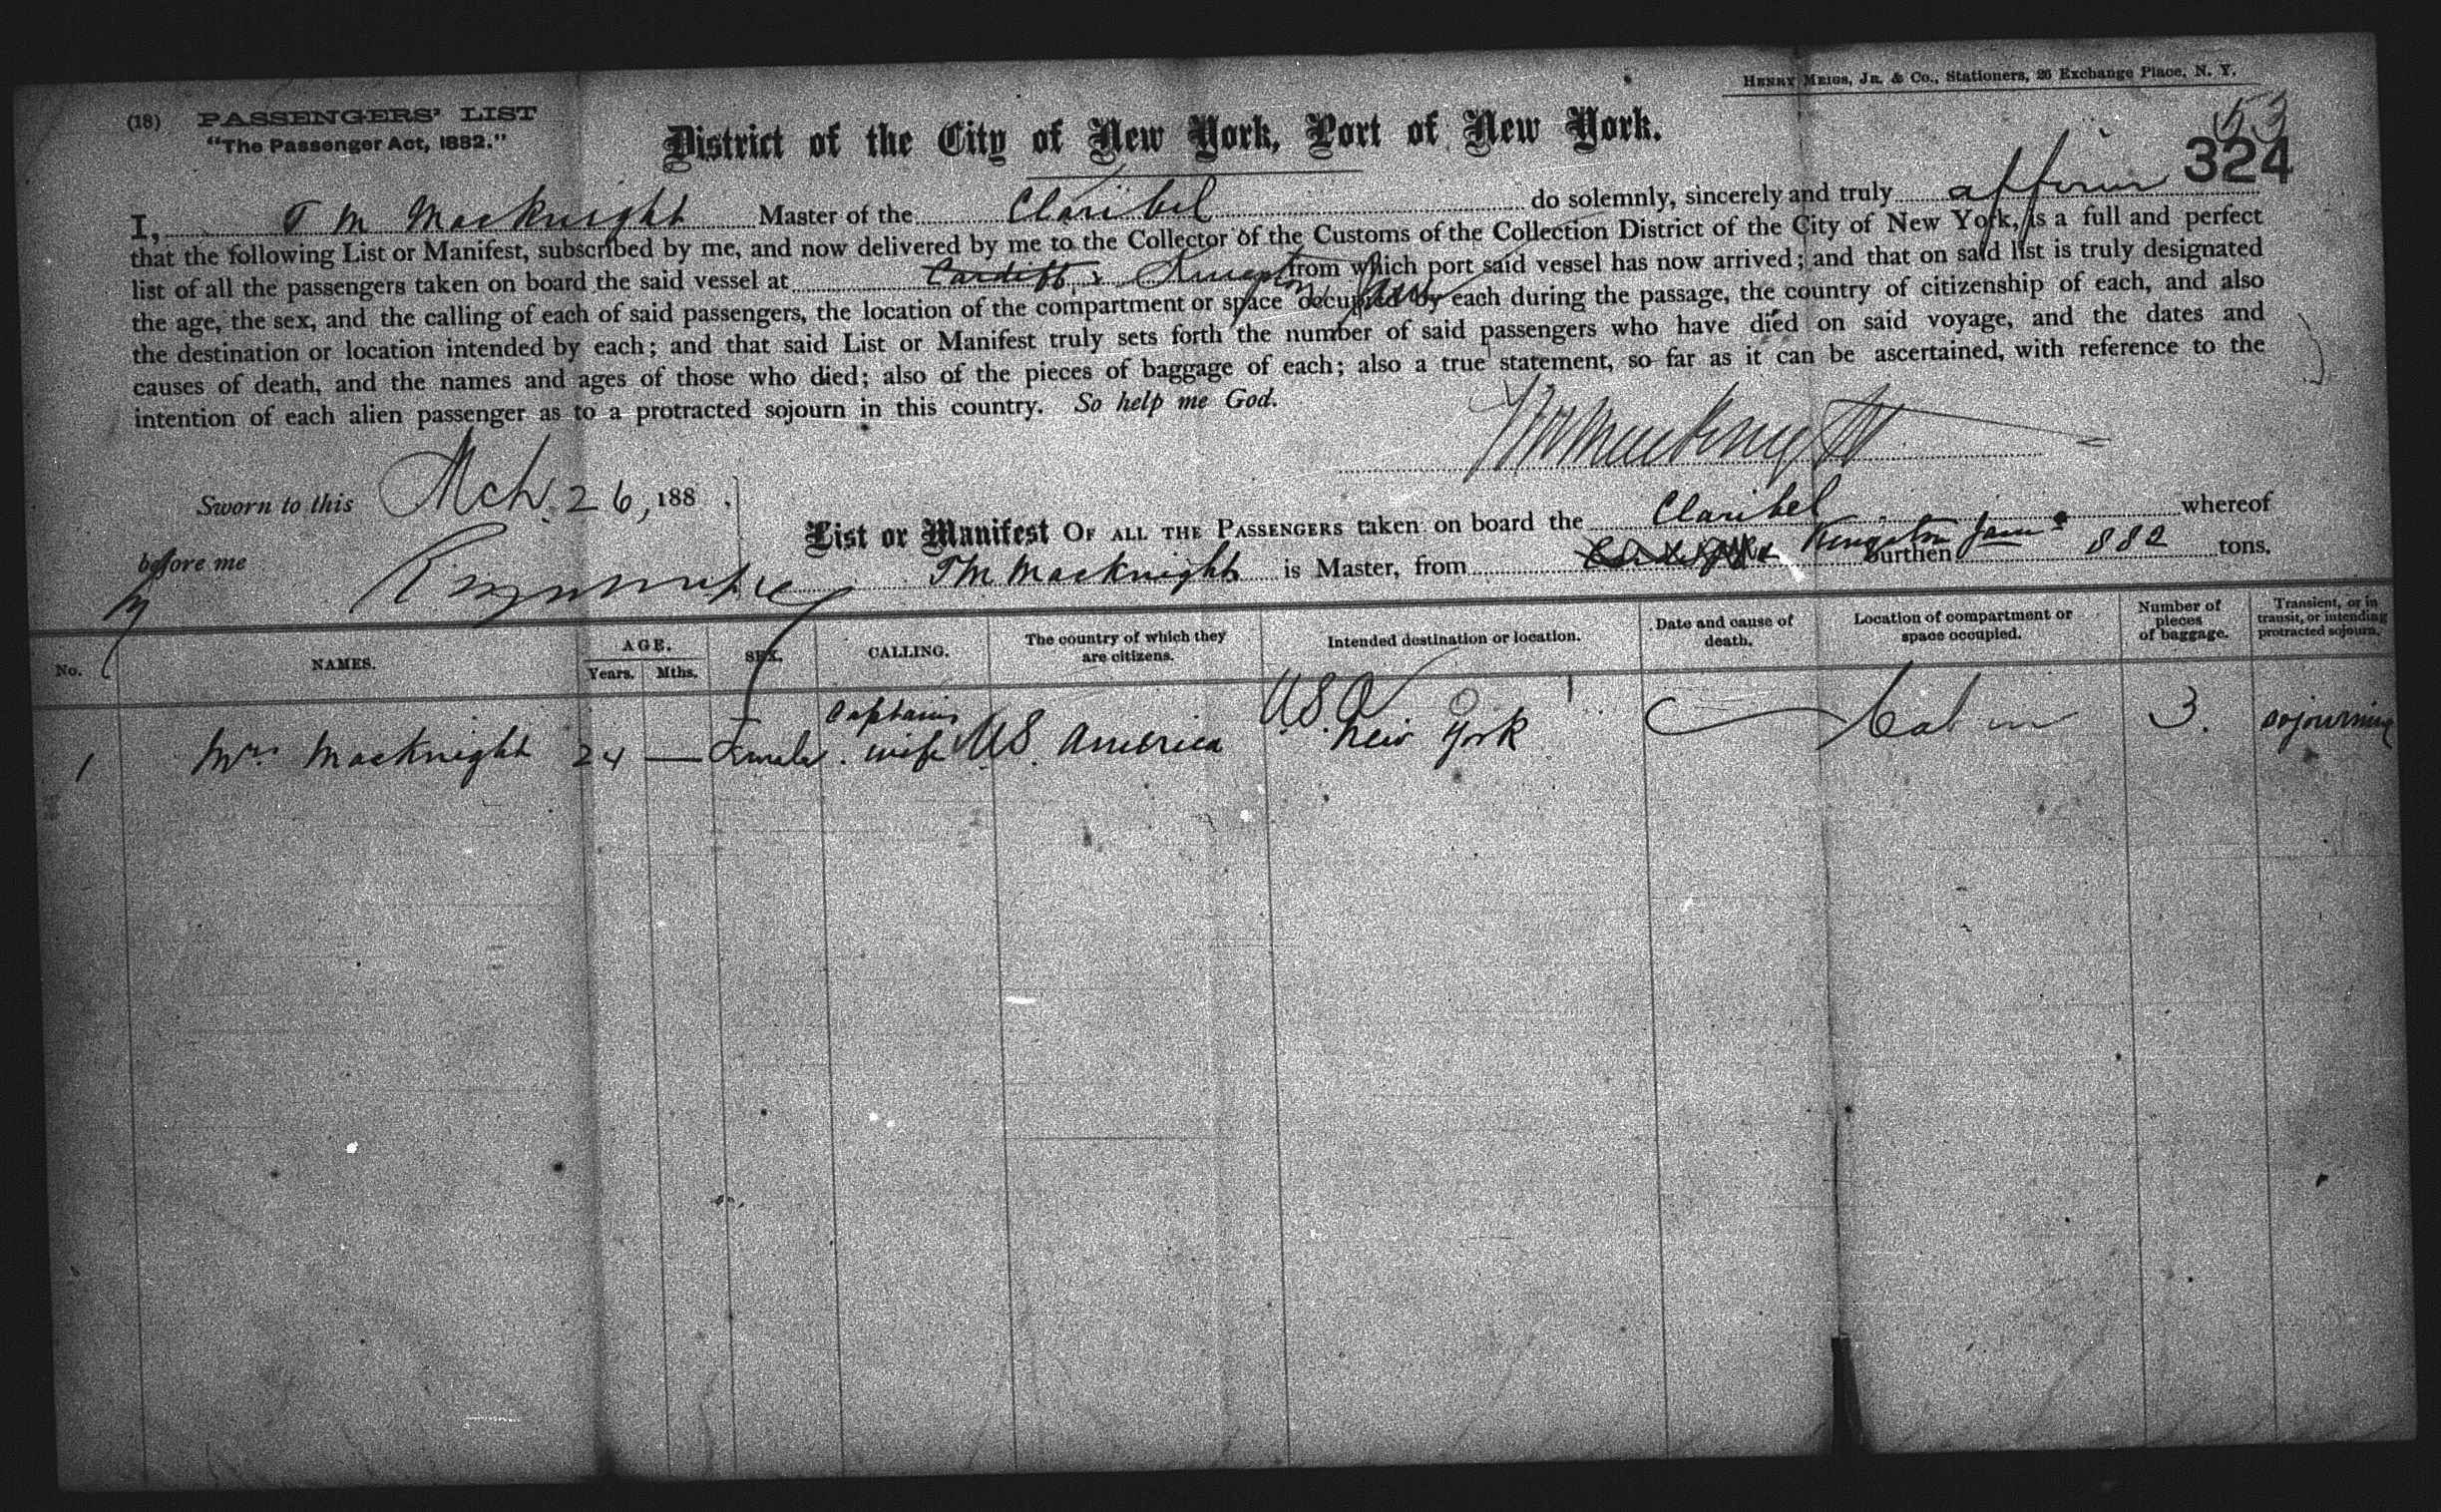 HENRY MEIGS, JR. & Co., Stationers, 26 Exchange Place, N. Y.
(18) PASSENGERS' LIST
"The Passenger Act, 1882."
District of the City of New York, Port of New York.
53
324
I, T M Macknight Master of the Claribel do solemnly, sincerely and truly affirm
that the following List or Manifest, subscribed by me, and now delivered by me to the Collector of the Customs of the Collection District of the City of New York, is a full and perfect
list of all the passengers taken on board the said vessel at Cardiff & Kingston Jam from which port said vessel has now arrived; and that on said list is truly designated
the age, the sex, and the calling of each of said passengers, the location of the compartment or space occupied by each during the passage, the country of citizenship of each, and also
the destination or location intended by each; and that said List or Manifest truly sets forth the number of said passengers who have died on said voyage, and the dates and
causes of death, and the names and ages of those who died; also of the pieces of baggage of each; also a true statement, so far as it can be ascertained, with reference to the
intention of each alien passenger as to a protracted sojourn in this country. So help me God.
TM Macknight
Sworn to this Mch. 26, 188
before me
List or Manifest OF ALL THE PASSENGERS taken on board the Claribel whereof
TM Macknight is Master, from & Kingston Jam burthen 882 tons.
No. NAMES. AGE. Years. Mths. SEX. CALLING. The country of which they are citizens. Intended destination or location. Date and cause of death. Location of compartment or space occupied. Number of pieces of baggage. Transient, or in transit, or intending protracted sojourn.
1 Mrs Macknight 24 — Female Captains wife US. America U.S.A New York Cabin 3. sojourning